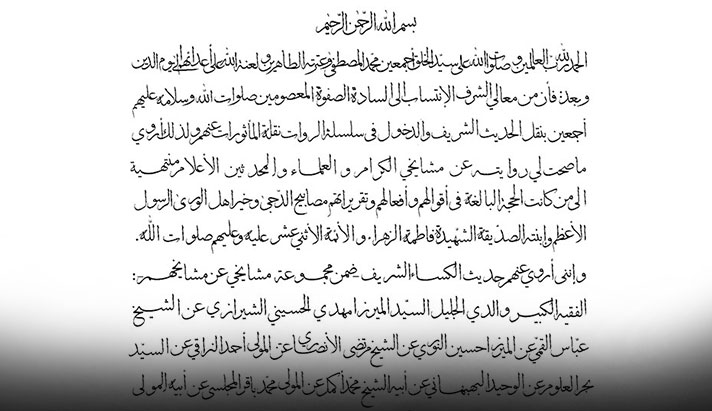 بسم الله الرحمن الرحيم
الحمد لله رب العالمين وصلوات الله على سيد الخلق أجمعين محمد المصطفى وعترته الطاهرين ولعنة الله على أعدائهم إلى يوم الدين
وبعد: فأن من معالي الشرف الإنتساب الى السادة الصفوة المعصومين صلوات الله وسلامه عليهم
أجمعين بنقل الحديث الشريف والدخول في سلسلة الروات نقلة المأثورات عنهم ولذلك أروي
ما صحت لي روايته عن مشايخي الكرام و العلماء و المحدثين الأعلام منتهية
الى من كانت الحجة البالغة في أقوالهم وأفعالهم وتقريراتهم مصابيح الدجى وخير اهل الورى الرسول
الأعظم وإبنته الصديقة الشهيدة فاطمة الزهراء. و الأئمة الأثني عشر عليه وعليهم صلوات الله.
و إنني أروي عنهم حديث الكساء الشريف ضمن مجموعة مشايخي عن مشايخهم:
الفقيه الكبير والدي الجليل السيد الميرزا مهدي الحسيني الشيرازي عن الشيخ
عباس القمي عن الميرزا حسين النوري عن الشيخ مرتضى الأنصاري عن المولى أحمد النراقي عن السيد
بحر العلوم عن الوحيد البهبهاني عن أبيه الشيخ محمد أكمل عن المولى محمد باقر المجلسي عن أبيه المولى